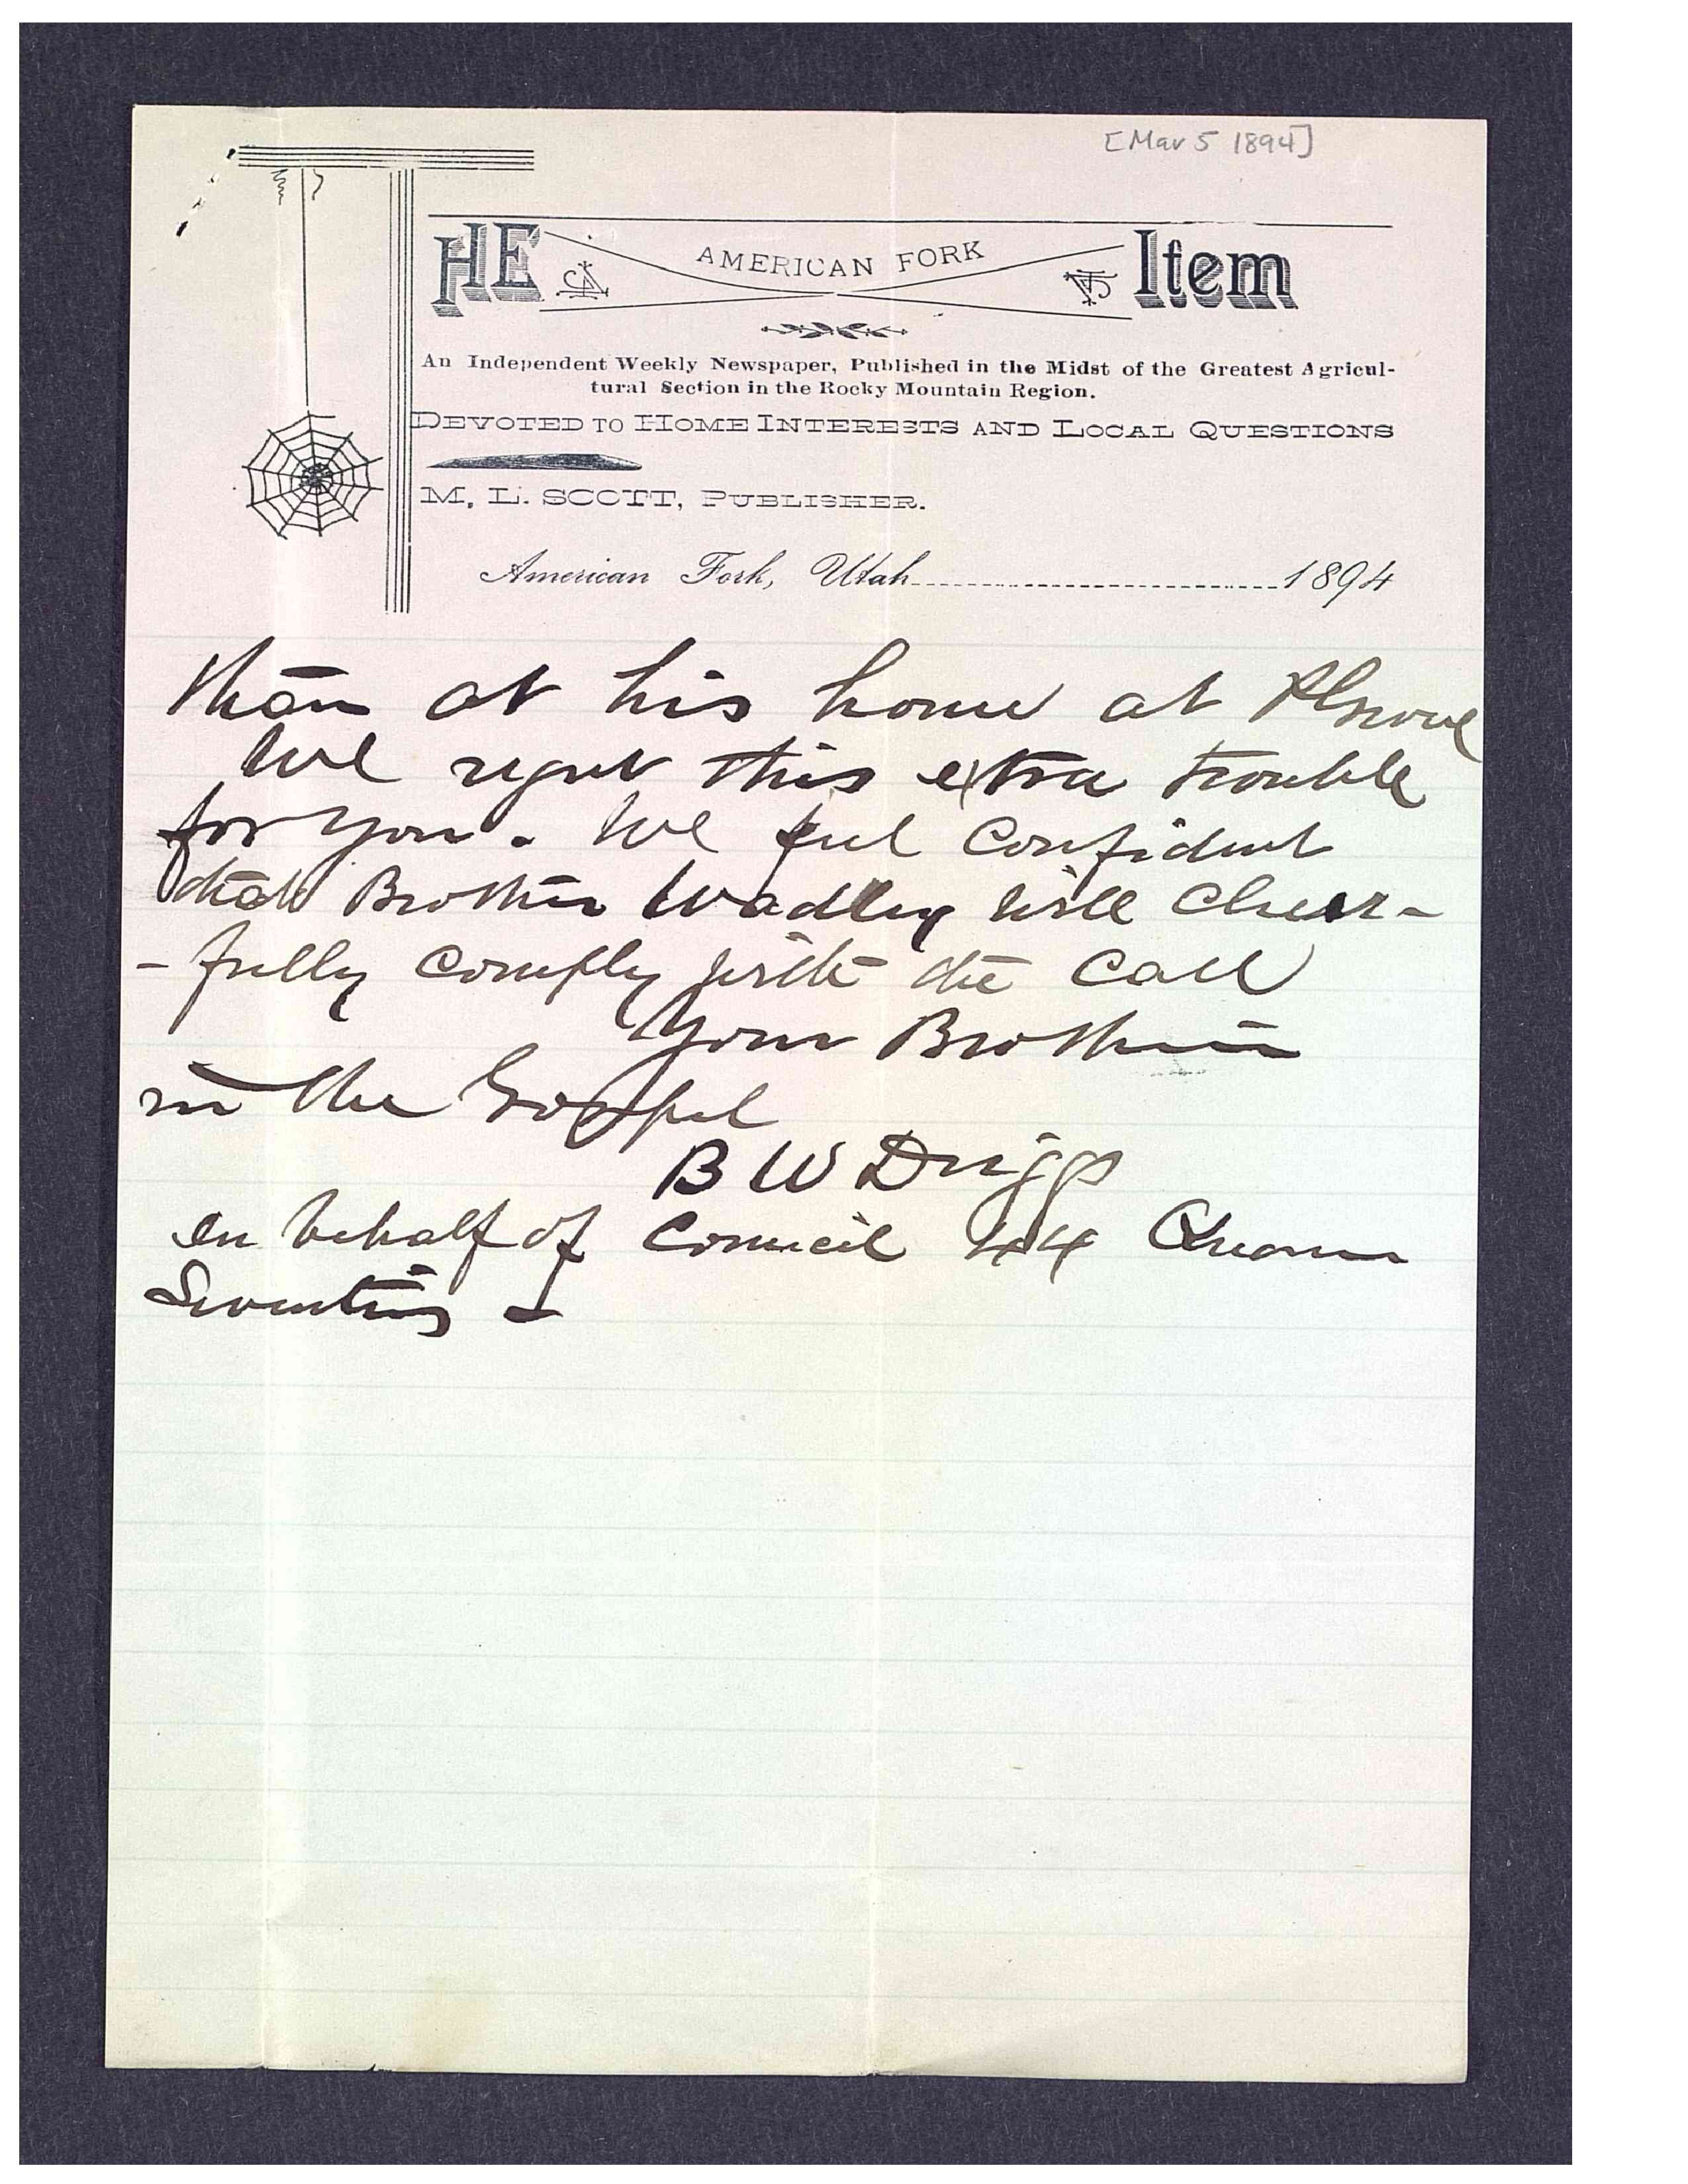 [Mar 5 1894]
THE AMERICAN FORK Item
An Independent Weekly Newspaper, Published in the Midst of the Greatest Agricul-
tural Section in the Rocky Mountain Region.
DEVOTED TO HOME INTERESTS AND LOCAL QUESTIONS
M. L. SCOTT, PUBLISHER.
American Fork, Utah 1894
than at his home at
We regret this extra trouble
for you. We feel Confident
that Brother Wadley will Cheer-
-fully comply with the Call
Your Brother
in the Gospel
B W Driggs
In behalf of Council 44 Quorum
Seventies